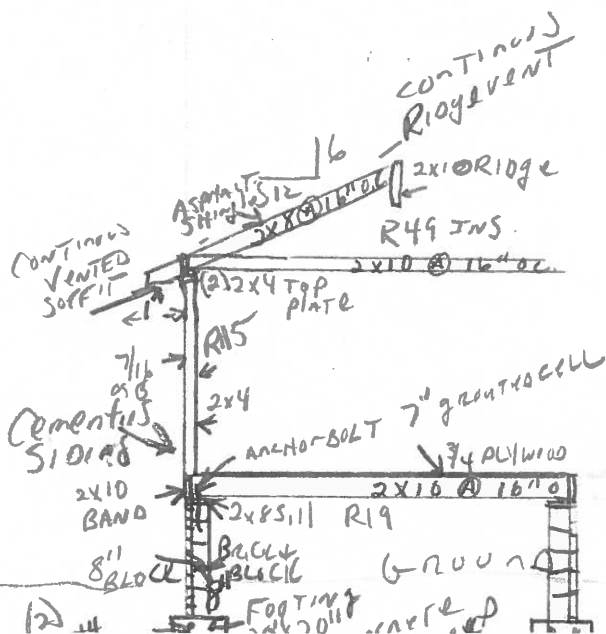 CONTINUS
RIDGEVENT
6
12
ASPHALT
SHINGLES
2X10 RIDGE
2X8 @ 16" OC
R49 INS.
CONTINUS
VENTED
SOFFIT
2X10 @ 16" OC
(2) 2X4 TOP
PLATE
1'
R15
7/16
OSB
2X4
CEMENTIUS
SIDING
ANCHOR BOLT 7" GROUTED CELL
3/4 PLYWOOD
2X10
BAND
2X10 @ 16" O
2X8 SILL R19
8"
BLOCK
BRICK+
BLOCK
8"
GROUND
(2)
FOOTING